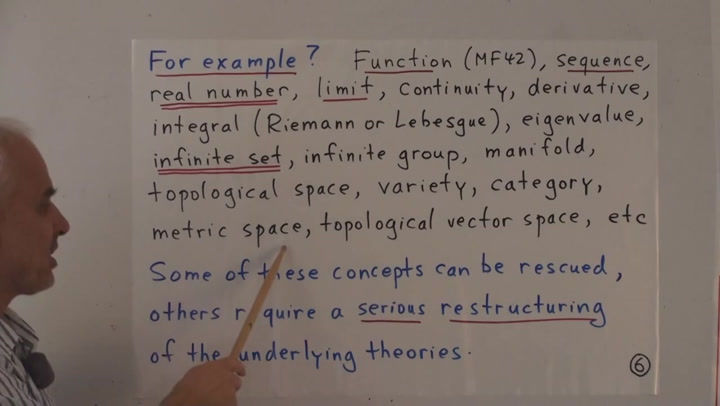 For example? Function (MF42), sequence,
real number, limit, continuity, derivative,
integral (Riemann or Lebesgue), eigenvalue,
infinite set, infinite group, manifold,
topological space, variety, category,
metric space, topological vector space, etc
Some of these concepts can be rescued,
others require a serious restructuring
of the underlying theories.
6